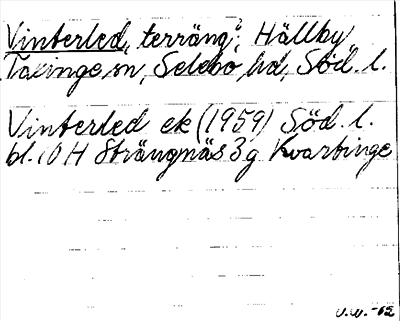 Vinterled, terräng?, Hällby
Taxinge sn, Selebo hd, Söd. l.
Vinterled ek (1959) Söd. l.
bl. 10 H Strängnäs 3g Kvartinge
V.W. -62